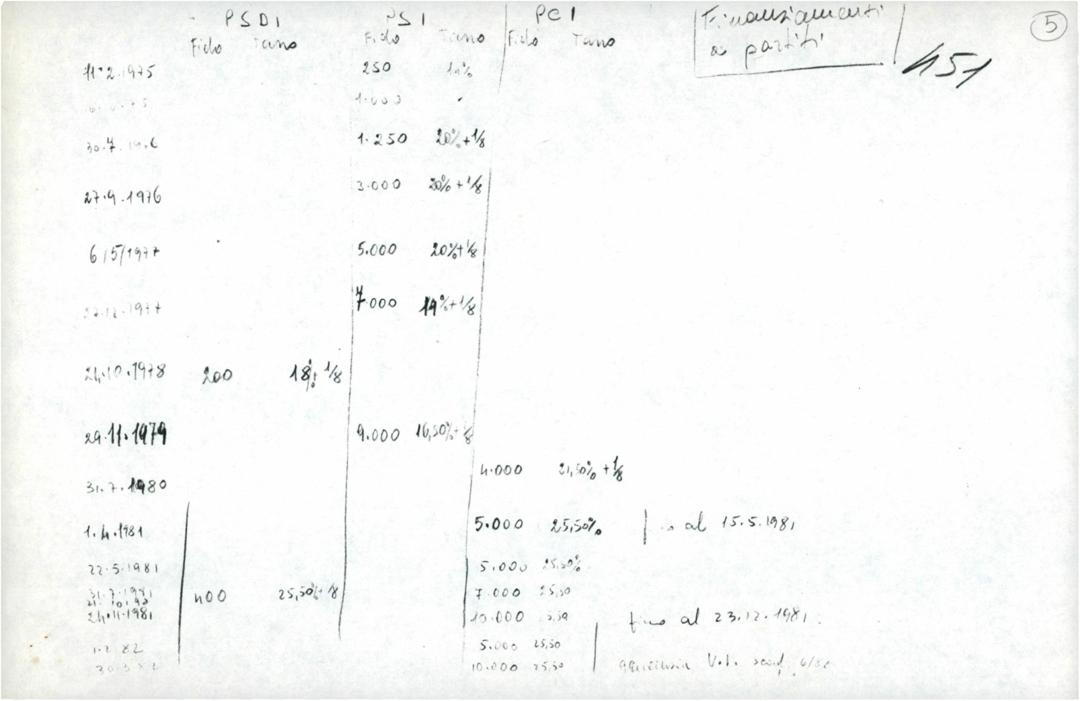 PSDI PSI PCI Finanziamenti 5
Fido Tasso Fido Tasso Fido Tasso a partiti 451
11.2.1975 250
1.000
1.250 20%+1/8
27.9.1976 3.000 20%+1/8
6/5/1977 5.000 20%+1/8
27.12.1977 7.000 19%+1/8
24.10.1978 200 18%+1/8
29.11.1979 9.000 16,50%+1/8
4.000 21,50%+1/8
31.7.1980
1.4.1981 5.000 25,50% al 15.5.1981
22.5.1981 5.000 25,50%
31.7.1981 400 25,50%+1/8 7.000 25,50
24.11.1981 10.000 fino al 23.12.1981
5.000 25,50
10.000 25,50